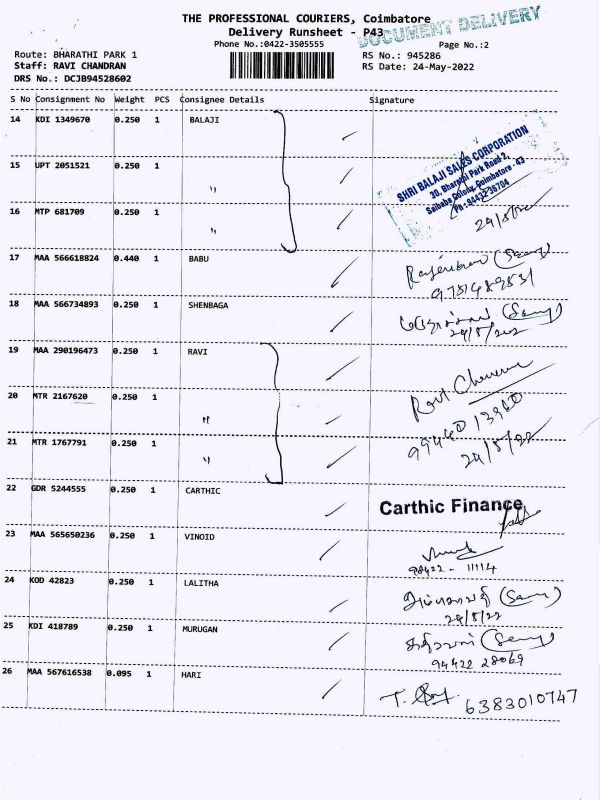 THE PROFESSIONAL COURIERS, Coimbatore
DOCUMENT DELIVERY
Delivery Runsheet - P43
Phone No.:0422-3505555 Page No.:2
Route: BHARATHI PARK 1 RS No.: 945286
Staff: RAVI CHANDRAN RS Date: 24-May-2022
DRS No.: DCJB94528602
S No Consignment No Weight PCS Consignee Details Signature
14 KDI 1349670 0.250 1 BALAJI
SHRI BALAJI SALES CORPORATION
30, Bharathi Park Road 2,
Saibaba Colony, Coimbatore - 43
15 UPT 2051521 0.250 1 "
16 MTP 681709 0.250 1 "
17 MAA 566618824 0.440 1 BABU
(Samy)
18 MAA 566734893 0.250 1 SHENBAGA
(Samy)
19 MAA 290196473 0.250 1 RAVI
Ravi
20 MTR 2167620 0.250 1 "
21 MTR 1767791 0.250 1 "
24/5/22
22 GDR 5244555 0.250 1 CARTHIC
Carthic Finance
23 MAA 565650236 0.250 1 VINOID
98422 - 11114
24 KOD 42823 0.250 1 LALITHA
(Samy)
24/5/22
25 KDI 418789 0.250 1 MURUGAN
(Samy)
94422 28069
26 MAA 567616538 0.095 1 HARI
6383010747